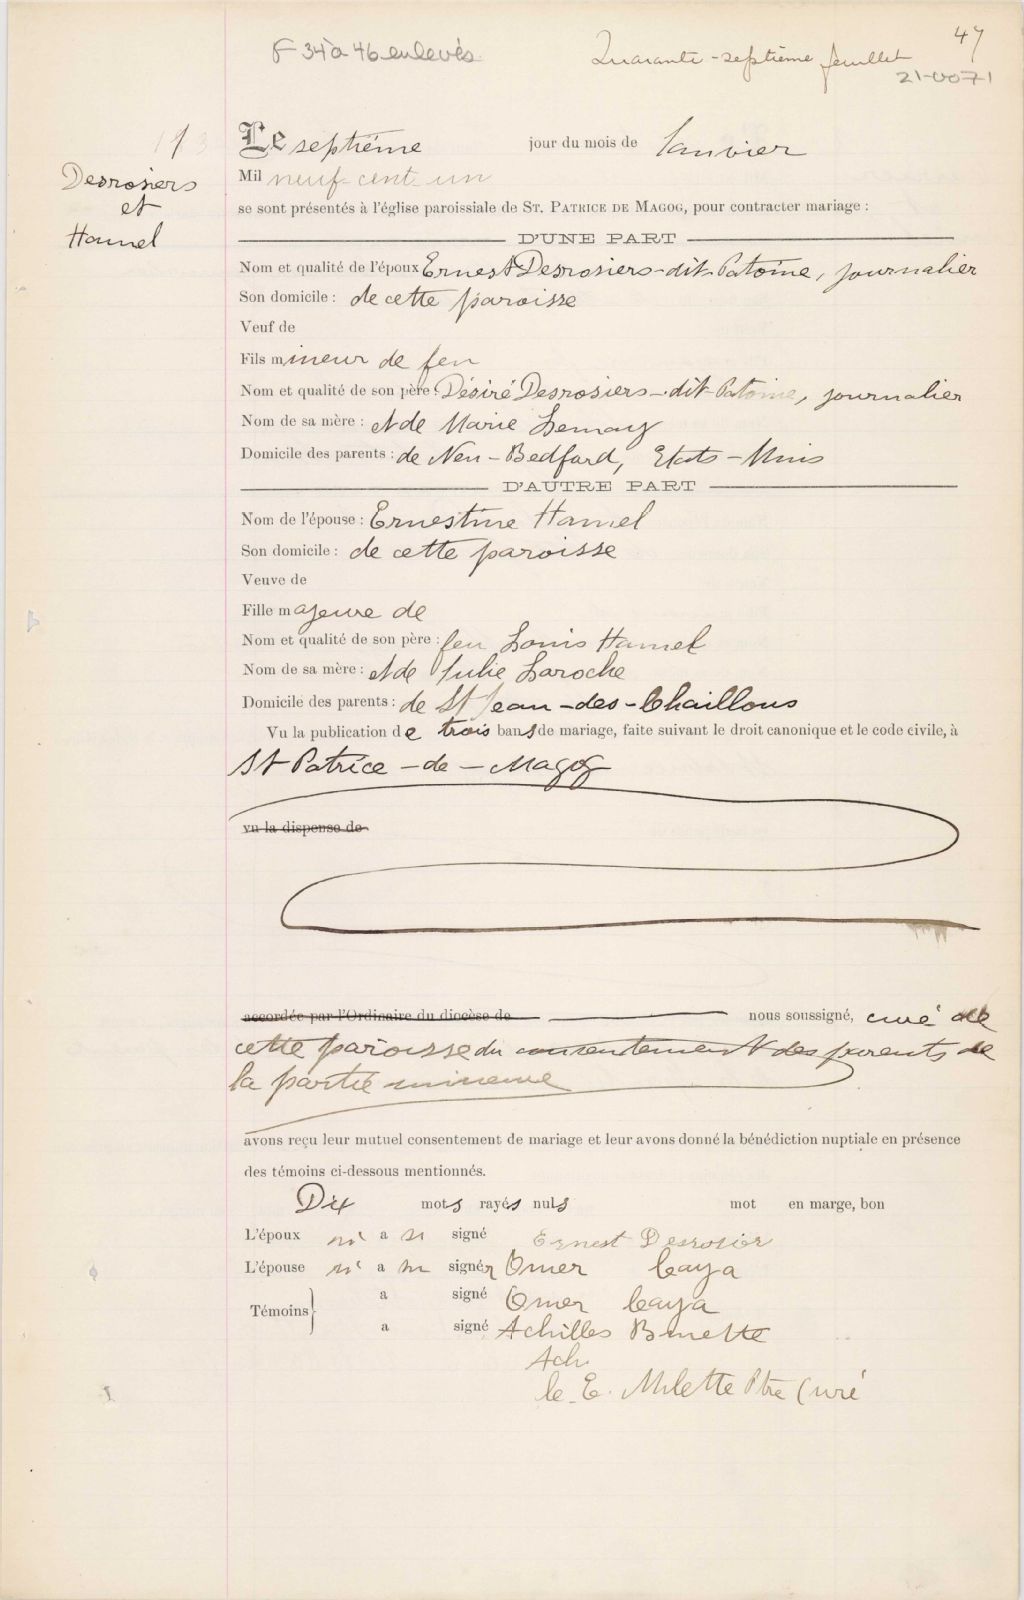 F 34 à 46 enlevés
47
Quarante-septième feuillet
21-0071
Desrosiers
et
Hamel
Le septième jour du mois de Janvier
Mil neuf-cent-un
se sont présentés à l'église paroissiale de ST. PATRICE DE MAGOG, pour contracter mariage :
D'UNE PART
Nom et qualité de l'époux Ernest Desrosiers-dit-Patoine, journalier
Son domicile : de cette paroisse
Veuf de
Fils mineur de feu
Nom et qualité de son père : Désiré Desrosiers-dit-Patoine, journalier
Nom de sa mère : et de Marie Lemay
Domicile des parents : de New-Bedford, Etats-Unis
D'AUTRE PART
Nom de l'épouse : Ernestine Hamel
Son domicile : de cette paroisse
Veuve de
Fille majeure de
Nom et qualité de son père : feu Louis Hamel
Nom de sa mère : et de Julie Laroche
Domicile des parents : de St Jean-des-Chaillons
Vu la publication de trois bans de mariage, faite suivant le droit canonique et le code civile, à
St Patrice-de-Magog
vu la dispense de
accordée par l'Ordinaire du diocèse de nous soussigné, curé de
cette paroisse du consentement des parents de
la partie mineure
avons reçu leur mutuel consentement de mariage et leur avons donné la bénédiction nuptiale en présence
des témoins ci-dessous mentionnés.
Dix mots rayés nuls mot en marge, bon
L'époux n' a signé Ernest Desrosier
L'épouse n' a signer Omer Caya
Témoins} a signé Omer Caya
a signé Achilles Binette
Ach.
E. Milette Ptre Curé